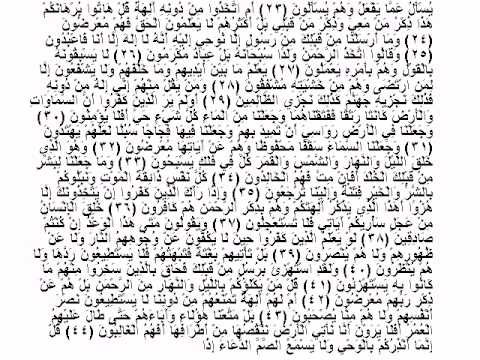 يُسْأَلُ عَمَّا يَفْعَلُ وَهُمْ يُسْأَلُونَ (٢٣) أَمِ اتَّخَذُوا مِنْ دُونِهِ آلِهَةً قُلْ هَاتُوا بُرْهَانَكُمْ
هَذَا ذِكْرُ مَنْ مَعِيَ وَذِكْرُ مَنْ قَبْلِي بَلْ أَكْثَرُهُمْ لَا يَعْلَمُونَ الْحَقَّ فَهُمْ مُعْرِضُونَ
(٢٤) وَمَا أَرْسَلْنَا مِنْ قَبْلِكَ مِنْ رَسُولٍ إِلَّا نُوحِي إِلَيْهِ أَنَّهُ لَا إِلَهَ إِلَّا أَنَا فَاعْبُدُونِ
(٢٥) وَقَالُوا اتَّخَذَ الرَّحْمَنُ وَلَدًا سُبْحَانَهُ بَلْ عِبَادٌ مُكْرَمُونَ (٢٦) لَا يَسْبِقُونَهُ
بِالْقَوْلِ وَهُمْ بِأَمْرِهِ يَعْمَلُونَ (٢٧) يَعْلَمُ مَا بَيْنَ أَيْدِيهِمْ وَمَا خَلْفَهُمْ وَلَا يَشْفَعُونَ إِلَّا
لِمَنِ ارْتَضَى وَهُمْ مِنْ خَشْيَتِهِ مُشْفِقُونَ (٢٨) وَمَنْ يَقُلْ مِنْهُمْ إِنِّي إِلَهٌ مِنْ دُونِهِ
فَذَلِكَ نَجْزِيهِ جَهَنَّمَ كَذَلِكَ نَجْزِي الظَّالِمِينَ (٢٩) أَوَلَمْ يَرَ الَّذِينَ كَفَرُوا أَنَّ السَّمَاوَاتِ
وَالْأَرْضَ كَانَتَا رَتْقًا فَفَتَقْنَاهُمَا وَجَعَلْنَا مِنَ الْمَاءِ كُلَّ شَيْءٍ حَيٍّ أَفَلَا يُؤْمِنُونَ (٣٠)
وَجَعَلْنَا فِي الْأَرْضِ رَوَاسِيَ أَنْ تَمِيدَ بِهِمْ وَجَعَلْنَا فِيهَا فِجَاجًا سُبُلًا لَعَلَّهُمْ يَهْتَدُونَ
(٣١) وَجَعَلْنَا السَّمَاءَ سَقْفًا مَحْفُوظًا وَهُمْ عَنْ آيَاتِهَا مُعْرِضُونَ (٣٢) وَهُوَ الَّذِي
خَلَقَ اللَّيْلَ وَالنَّهَارَ وَالشَّمْسَ وَالْقَمَرَ كُلٌّ فِي فَلَكٍ يَسْبَحُونَ (٣٣) وَمَا جَعَلْنَا لِبَشَرٍ
مِنْ قَبْلِكَ الْخُلْدَ أَفَإِنْ مِتَّ فَهُمُ الْخَالِدُونَ (٣٤) كُلُّ نَفْسٍ ذَائِقَةُ الْمَوْتِ وَنَبْلُوكُمْ
بِالشَّرِّ وَالْخَيْرِ فِتْنَةً وَإِلَيْنَا تُرْجَعُونَ (٣٥) وَإِذَا رَآكَ الَّذِينَ كَفَرُوا إِنْ يَتَّخِذُونَكَ إِلَّا
هُزُوًا أَهَذَا الَّذِي يَذْكُرُ آلِهَتَكُمْ وَهُمْ بِذِكْرِ الرَّحْمَنِ هُمْ كَافِرُونَ (٣٦) خُلِقَ الْإِنْسَانُ
مِنْ عَجَلٍ سَأُرِيكُمْ آيَاتِي فَلَا تَسْتَعْجِلُونِ (٣٧) وَيَقُولُونَ مَتَى هَذَا الْوَعْدُ إِنْ كُنْتُمْ
صَادِقِينَ (٣٨) لَوْ يَعْلَمُ الَّذِينَ كَفَرُوا حِينَ لَا يَكُفُّونَ عَنْ وُجُوهِهِمُ النَّارَ وَلَا عَنْ
ظُهُورِهِمْ وَلَا هُمْ يُنْصَرُونَ (٣٩) بَلْ تَأْتِيهِمْ بَغْتَةً فَتَبْهَتُهُمْ فَلَا يَسْتَطِيعُونَ رَدَّهَا وَلَا
هُمْ يُنْظَرُونَ (٤٠) وَلَقَدِ اسْتُهْزِئَ بِرُسُلٍ مِنْ قَبْلِكَ فَحَاقَ بِالَّذِينَ سَخِرُوا مِنْهُمْ مَا
كَانُوا بِهِ يَسْتَهْزِئُونَ (٤١) قُلْ مَنْ يَكْلَؤُكُمْ بِاللَّيْلِ وَالنَّهَارِ مِنَ الرَّحْمَنِ بَلْ هُمْ عَنْ
ذِكْرِ رَبِّهِمْ مُعْرِضُونَ (٤٢) أَمْ لَهُمْ آلِهَةٌ تَمْنَعُهُمْ مِنْ دُونِنَا لَا يَسْتَطِيعُونَ نَصْرَ
أَنْفُسِهِمْ وَلَا هُمْ مِنَّا يُصْحَبُونَ (٤٣) بَلْ مَتَّعْنَا هَؤُلَاءِ وَآبَاءَهُمْ حَتَّى طَالَ عَلَيْهِمُ
الْعُمُرُ أَفَلَا يَرَوْنَ أَنَّا نَأْتِي الْأَرْضَ نَنْقُصُهَا مِنْ أَطْرَافِهَا أَفَهُمُ الْغَالِبُونَ (٤٤) قُلْ
إِنَّمَا أُنْذِرُكُمْ بِالْوَحْيِ وَلَا يَسْمَعُ الصُّمُّ الدُّعَاءَ إِذَا